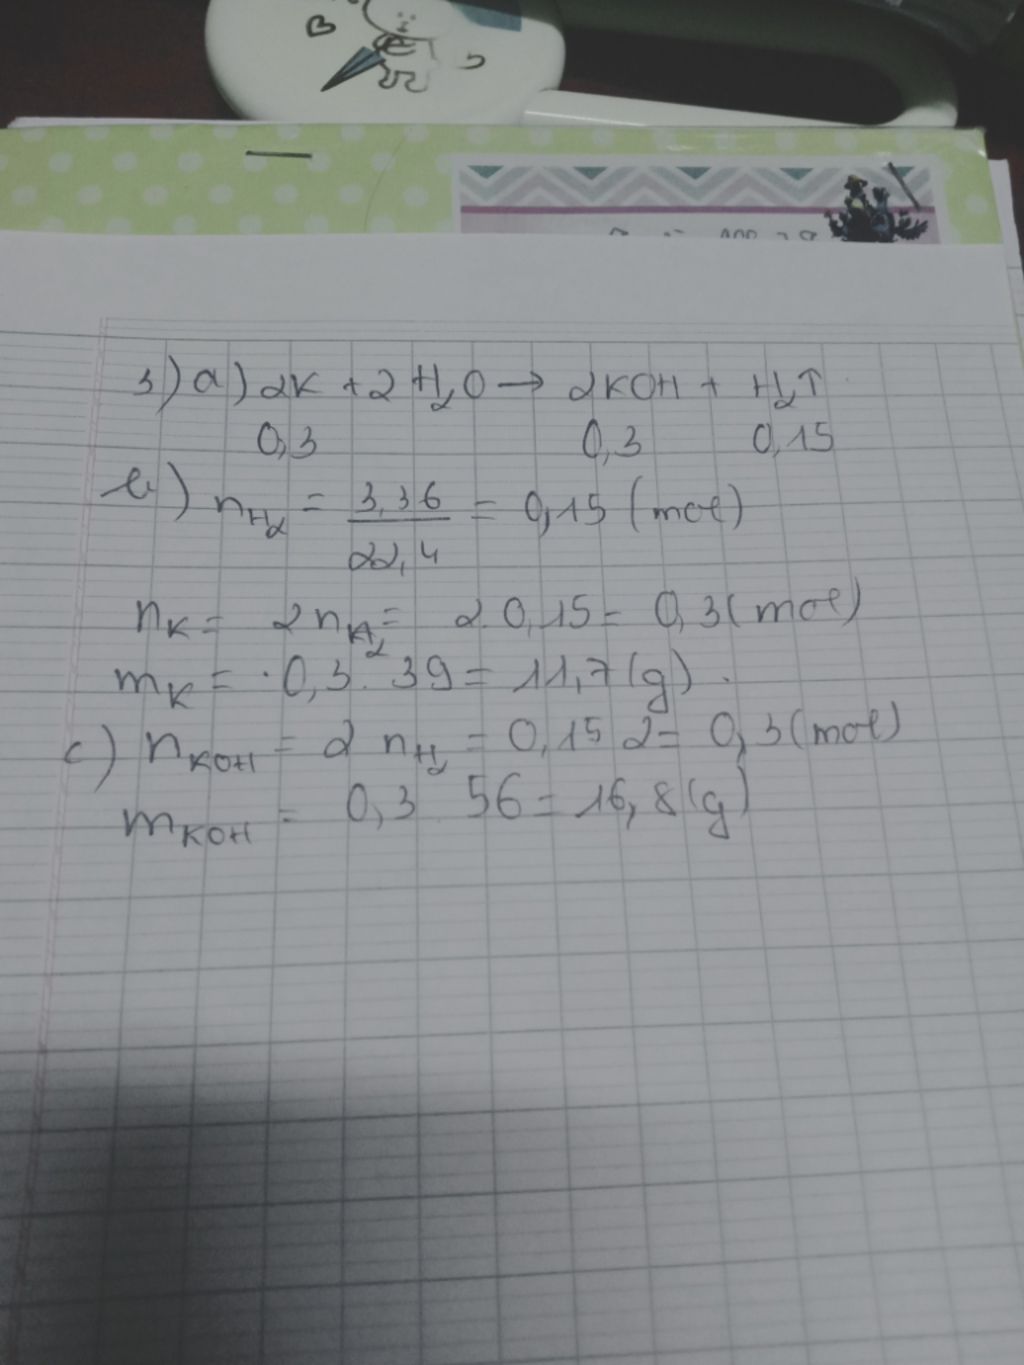 3) a) 2K + 2H₂O → 2KOH + H₂↑
0,3 0,3 0,15
b) nH₂ = 3,36 / 22,4 = 0,15 (mol)
nK = 2nH₂ = 2.0,15 = 0,3 (mol)
mK = 0,3.39 = 11,7 (g).
c) nKOH = 2 nH₂ = 0,15 2 = 0,3 (mol)
mKOH = 0,3.56 = 16,8 (g)